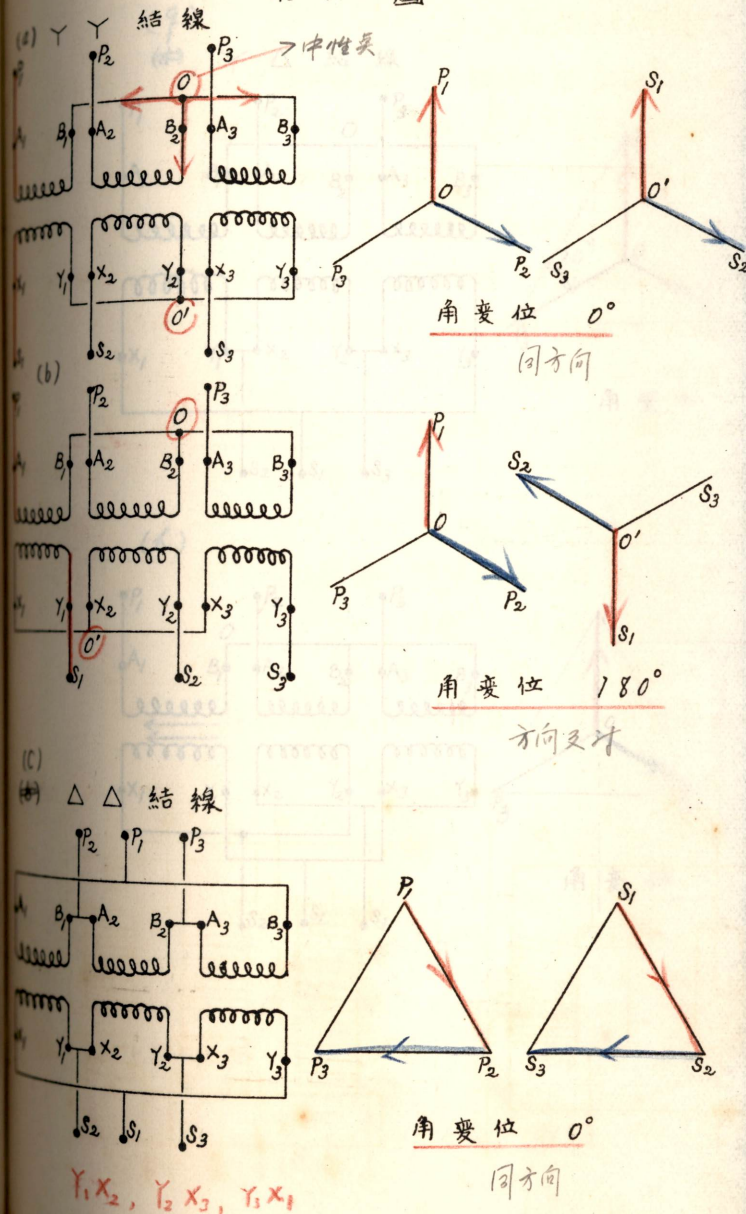 (a) Y Y 結線
P2
P3
中性点
O
A1 B1 A2 B2 A3 B3
Y1 X2 Y2 X3 Y3
O'
S2 S3
P1
O
P3 P2
S1
O'
S3 S2
角変位 0°
同方向
(b)
P2
P3
O
B1 A2 B2 A3 B3
X1 Y1 X2 Y2 X3 Y3
O'
S1 S2 S3
P1
O
P3 P2
S2 S3
O'
S1
角変位 180°
方向反対
(c)
△ △ 結線
P2 P1 P3
A1 B1 A2 B2 A3 B3
Y1 X2 Y2 X3 Y3
S2 S1 S3
Y1X2, Y2X3, Y3X1
P1
P3 P2
S1
S3 S2
角変位 0°
同方向